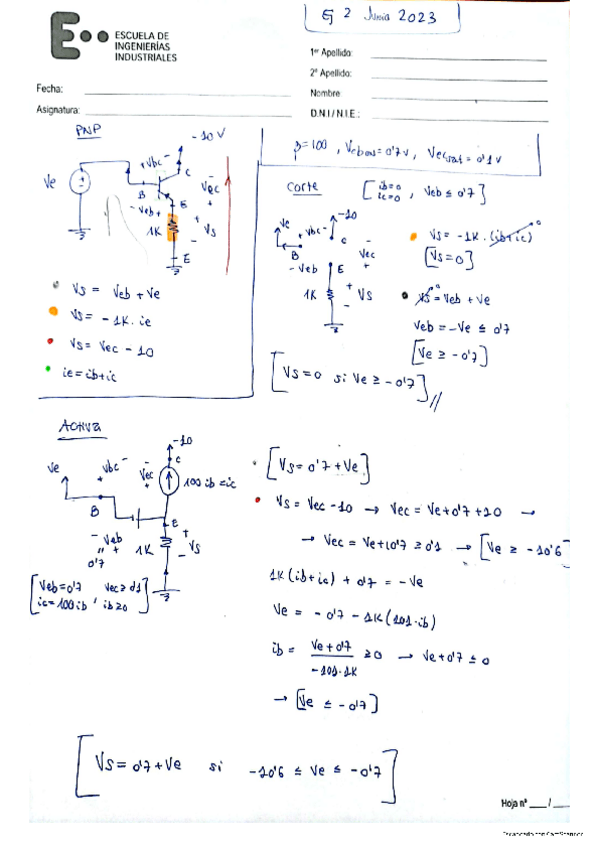 Ej 2 Junio 2023
ESCUELA DE
INGENIERÍAS
INDUSTRIALES
1er Apellido:
2º Apellido:
Fecha:
Nombre:
Asignatura:
D.N.I / N.I.E.:
PNP
-10V
β=100, Vebon=0'7v, Vecsat=0'1v
+ Vbc -
C
Ve
B
- Veb +
E
Vec
1K
Vs
E
Corte
[ib=0 ic=0, Veb ≤ 0'7]
-10
Ve
Vbc -
C
B
- Veb
E
Vec
1K
Vs
Vs = -1K·(ib+ic)
[Vs=0]
Vs = Veb + Ve
Veb = -Ve ≤ 0'7
[Ve ≥ -0'7]
[Vs=0 si Ve ≥ -0'7]
Vs = Veb + Ve
Vs = -1K·ie
Vs = Vec - 10
ie = ib+ic
Activa
-10
C
Ve
Vbc -
Vec
100ib=ic
B
- Veb +
0'7
E
1K
Vs
[Veb=0'7 Vec≥0'1
ic=100ib, ib≥0]
[Vs=0'7+Ve]
Vs = Vec-10 → Vec = Ve+0'7+10 →
→ Vec = Ve+10'7 ≥ 0'1 → [Ve ≥ -10'6]
1K(ib+ic) + 0'7 = -Ve
Ve = -0'7 - 1K(101·ib)
ib = Ve+0'7 / -101·1K ≥ 0 → Ve+0'7 ≤ 0
→ [Ve ≤ -0'7]
[Vs = 0'7+Ve si -10'6 ≤ Ve ≤ -0'7]
Hoja nº ___/___